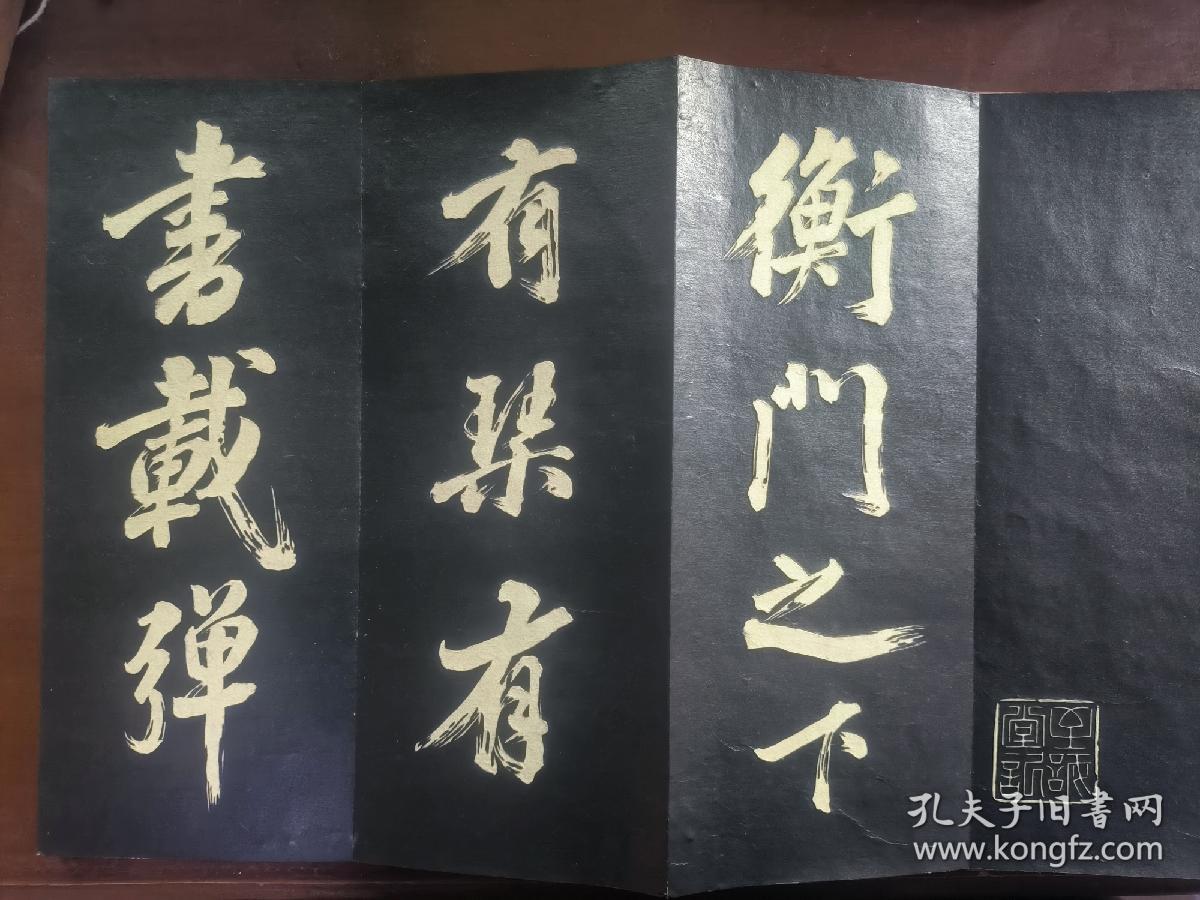 衡門之下
有琴有
書載弹
孔夫子旧書网
www.kongfz.com